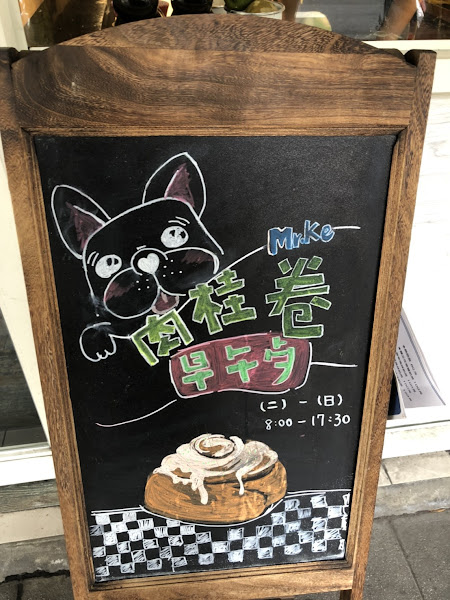 Mr.Ke
肉桂卷
早午夕
(二)-(日)
8:00-17:30